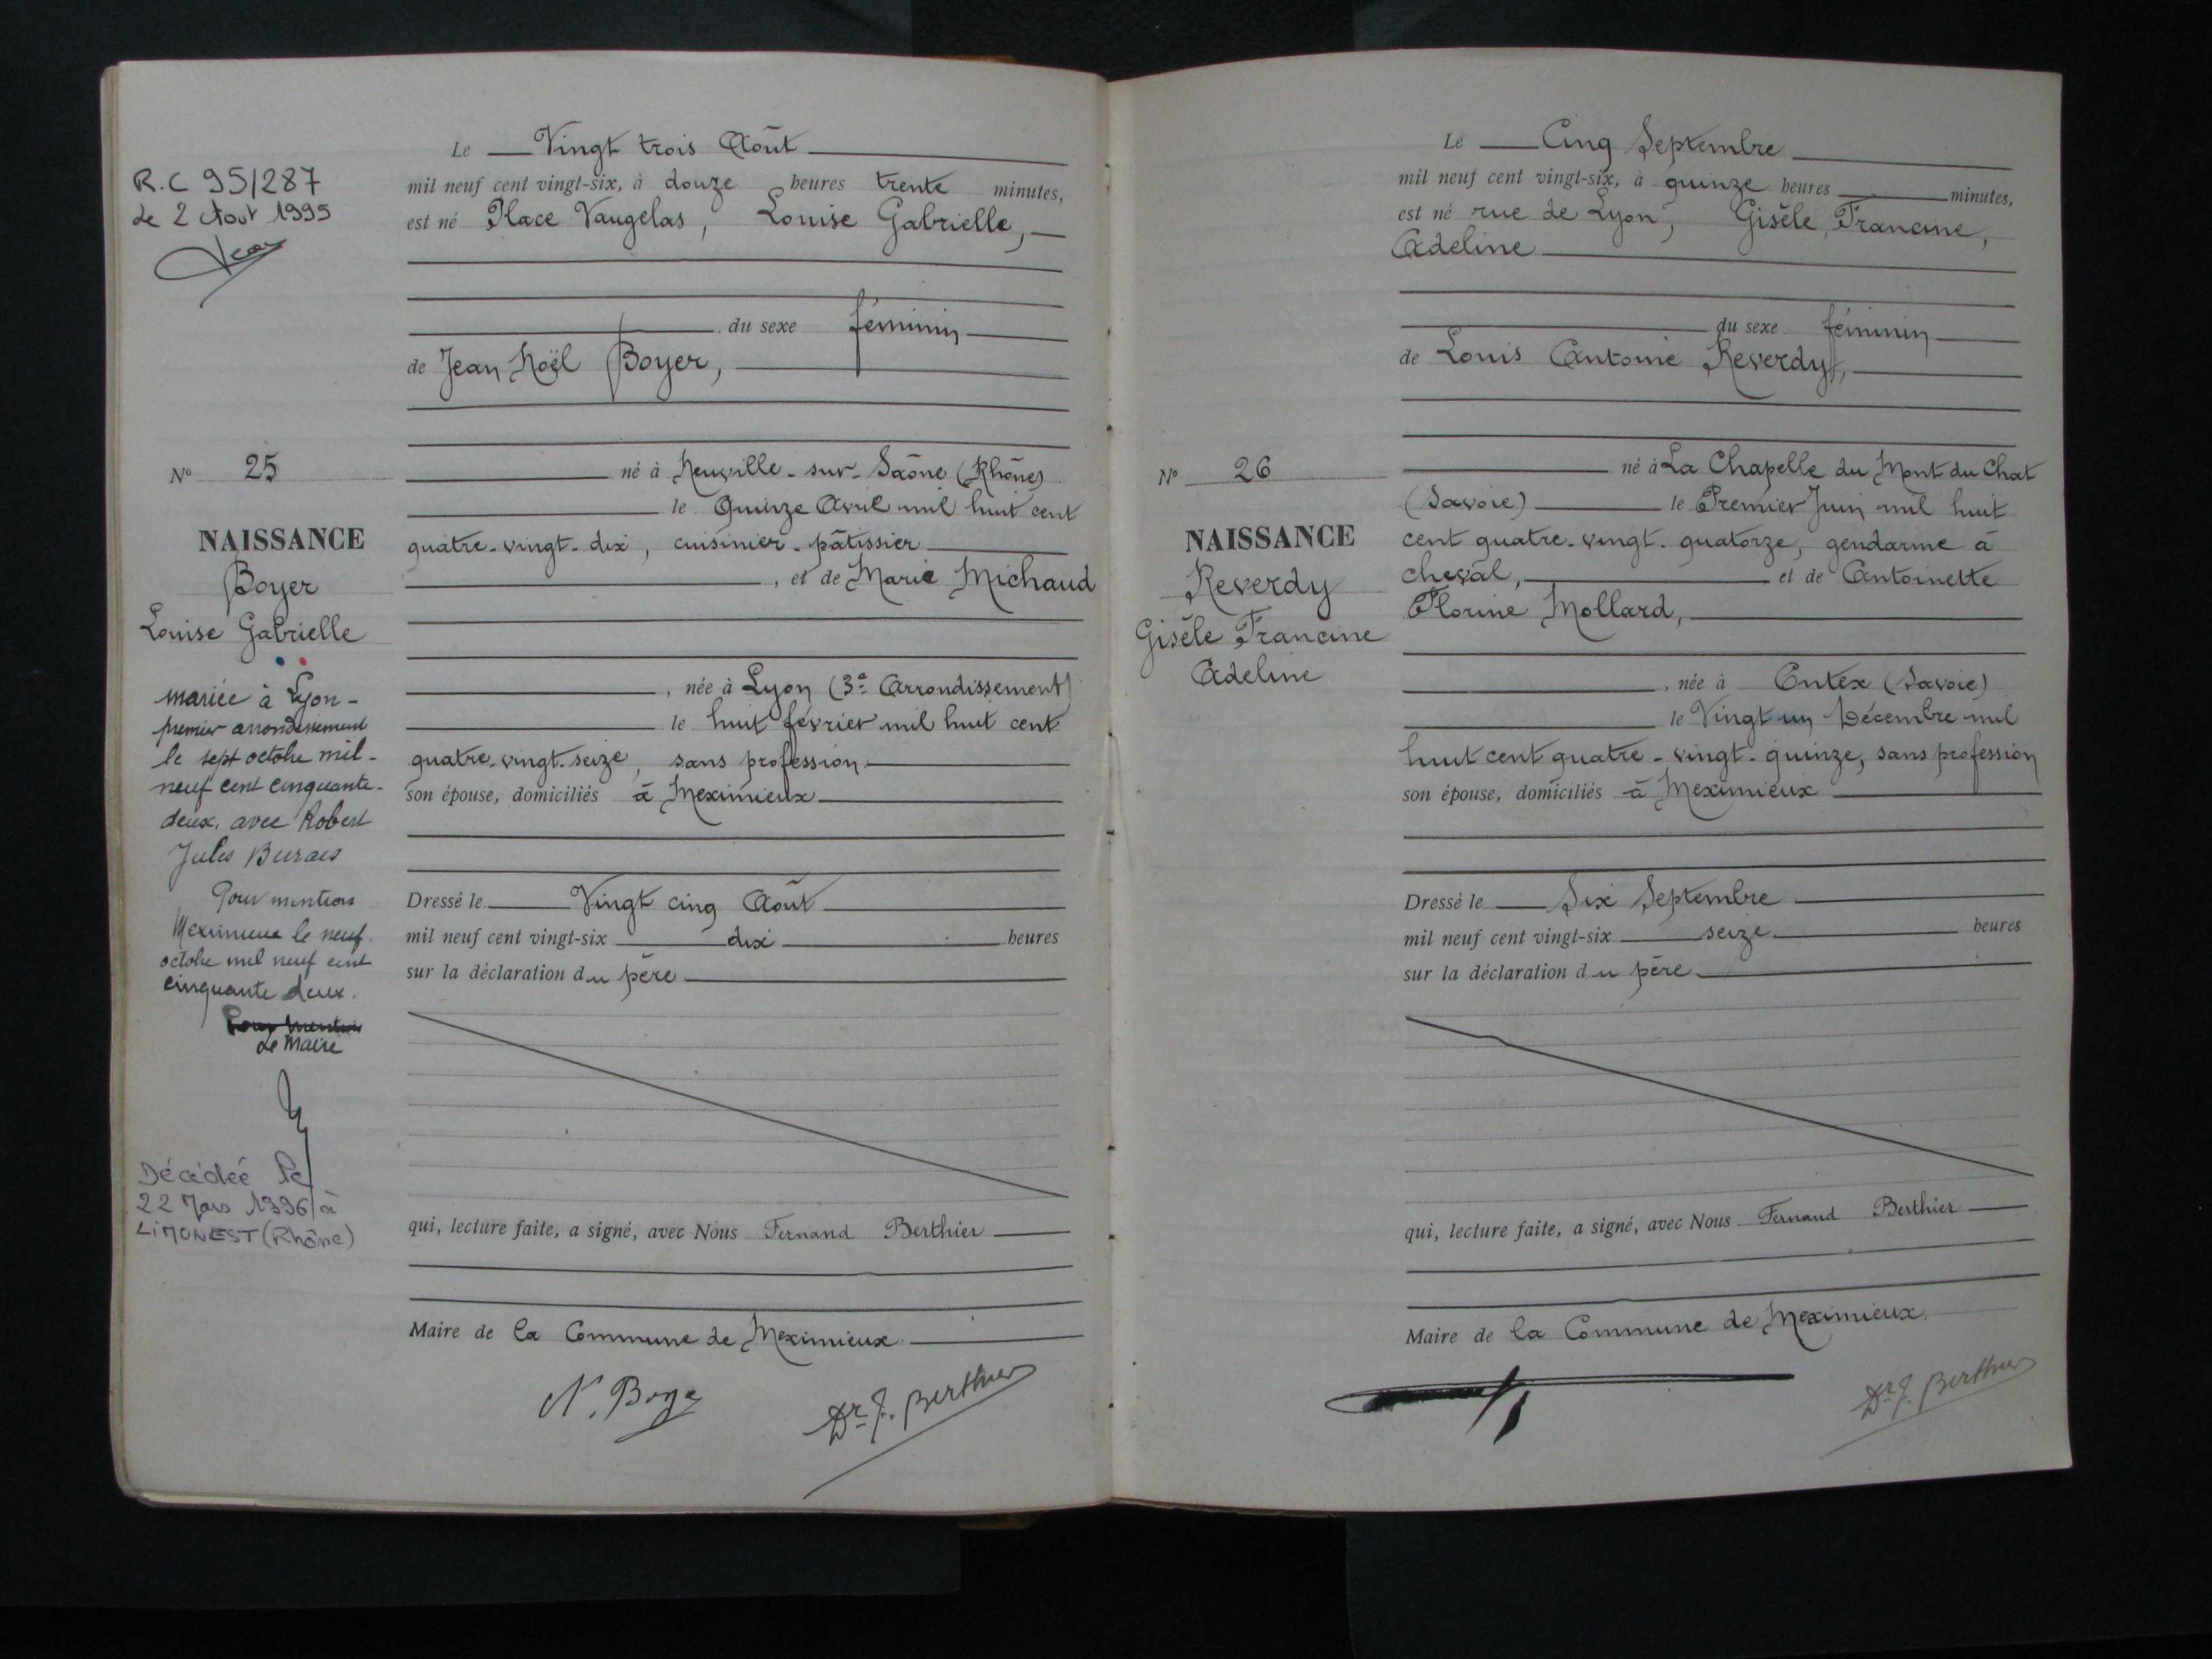 R.C 95/287
de 2 Aout 1995
N° 25
NAISSANCE
Boyer
Louise Gabrielle
mariée à Lyon -
premier arrondissement
le sept octobre mil -
neuf cent cinquante -
deux, avec Robert
Jules
Pour mention
Meximieux le neuf
octobre mil neuf cent
cinquante deux.
Le Maire
Décédée le
22 Mars 1996 à
LIMONEST (Rhône)
Le Vingt trois Août
mil neuf cent vingt-six, à douze heures trente minutes,
est né Place Vaugelas, Louise Gabrielle,
du sexe féminin
de Jean Noël Boyer,
né à Neuville-sur-Saône (Rhône)
le Quinze Avril mil huit cent
quatre-vingt-dix, cuisinier-pâtissier
, et de Marie Michaud
, née à Lyon (3e Arrondissement)
le huit février mil huit cent
quatre-vingt-seize, sans profession
son épouse, domiciliés à Meximieux
Dressé le Vingt cinq Août
mil neuf cent vingt-six dix heures
sur la déclaration du père
qui, lecture faite, a signé, avec Nous Fernand Berthier
Maire de la Commune de Meximieux
N. Boye
Dr F. Berthier
N° 26
NAISSANCE
Reverdy
Gisèle Francine
Adeline
Le Cinq Septembre
mil neuf cent vingt-six, à quinze heures minutes,
est né rue de Lyon, Gisèle, Francine,
Adeline
du sexe féminin
de Louis Antoine Reverdy,
né à La Chapelle du Mont du Chat
(Savoie) le Premier Juin mil huit
cent quatre-vingt-quatorze, gendarme à
cheval, et de Antoinette
Florine Mollard,
, née à Ontex (Savoie)
le Vingt un Décembre mil
huit cent quatre-vingt-quinze, sans profession
son épouse, domiciliés à Meximieux
Dressé le Six Septembre
mil neuf cent vingt-six seize heures
sur la déclaration du père
qui, lecture faite, a signé, avec Nous Fernand Berthier
Maire de la Commune de Meximieux.
Dr F. Berthier